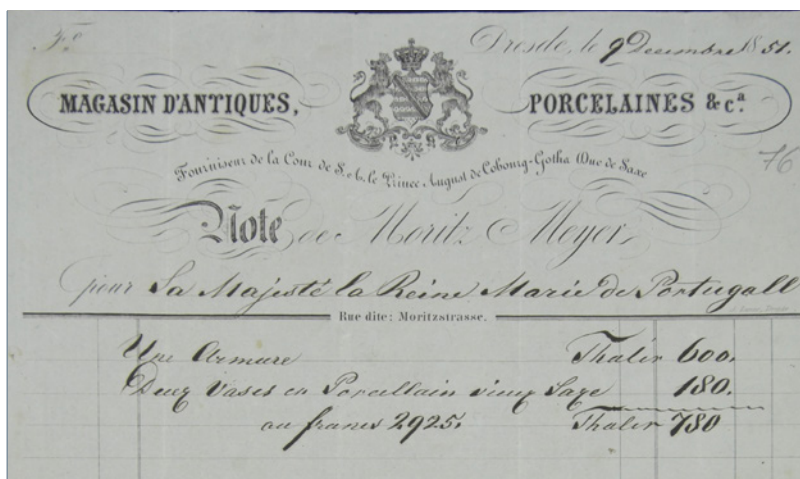 Fo.
Dresde, le 9 Decembre 1851.
MAGASIN D'ANTIQUES, PORCELAINES & ca.
76
Fournisseur de la Cour de S. A. le Prince August de Cobourg-Gotha Duc de Saxe
Note de Moritz Meyer
pour Sa Majesté la Reine Marie de Portugall
Rue dite: Moritzstrasse.
Une Armure Thaler 600.
Deux Vases en Porcellain vieux Saxe 180.
ou francs 2925. Thaler 780